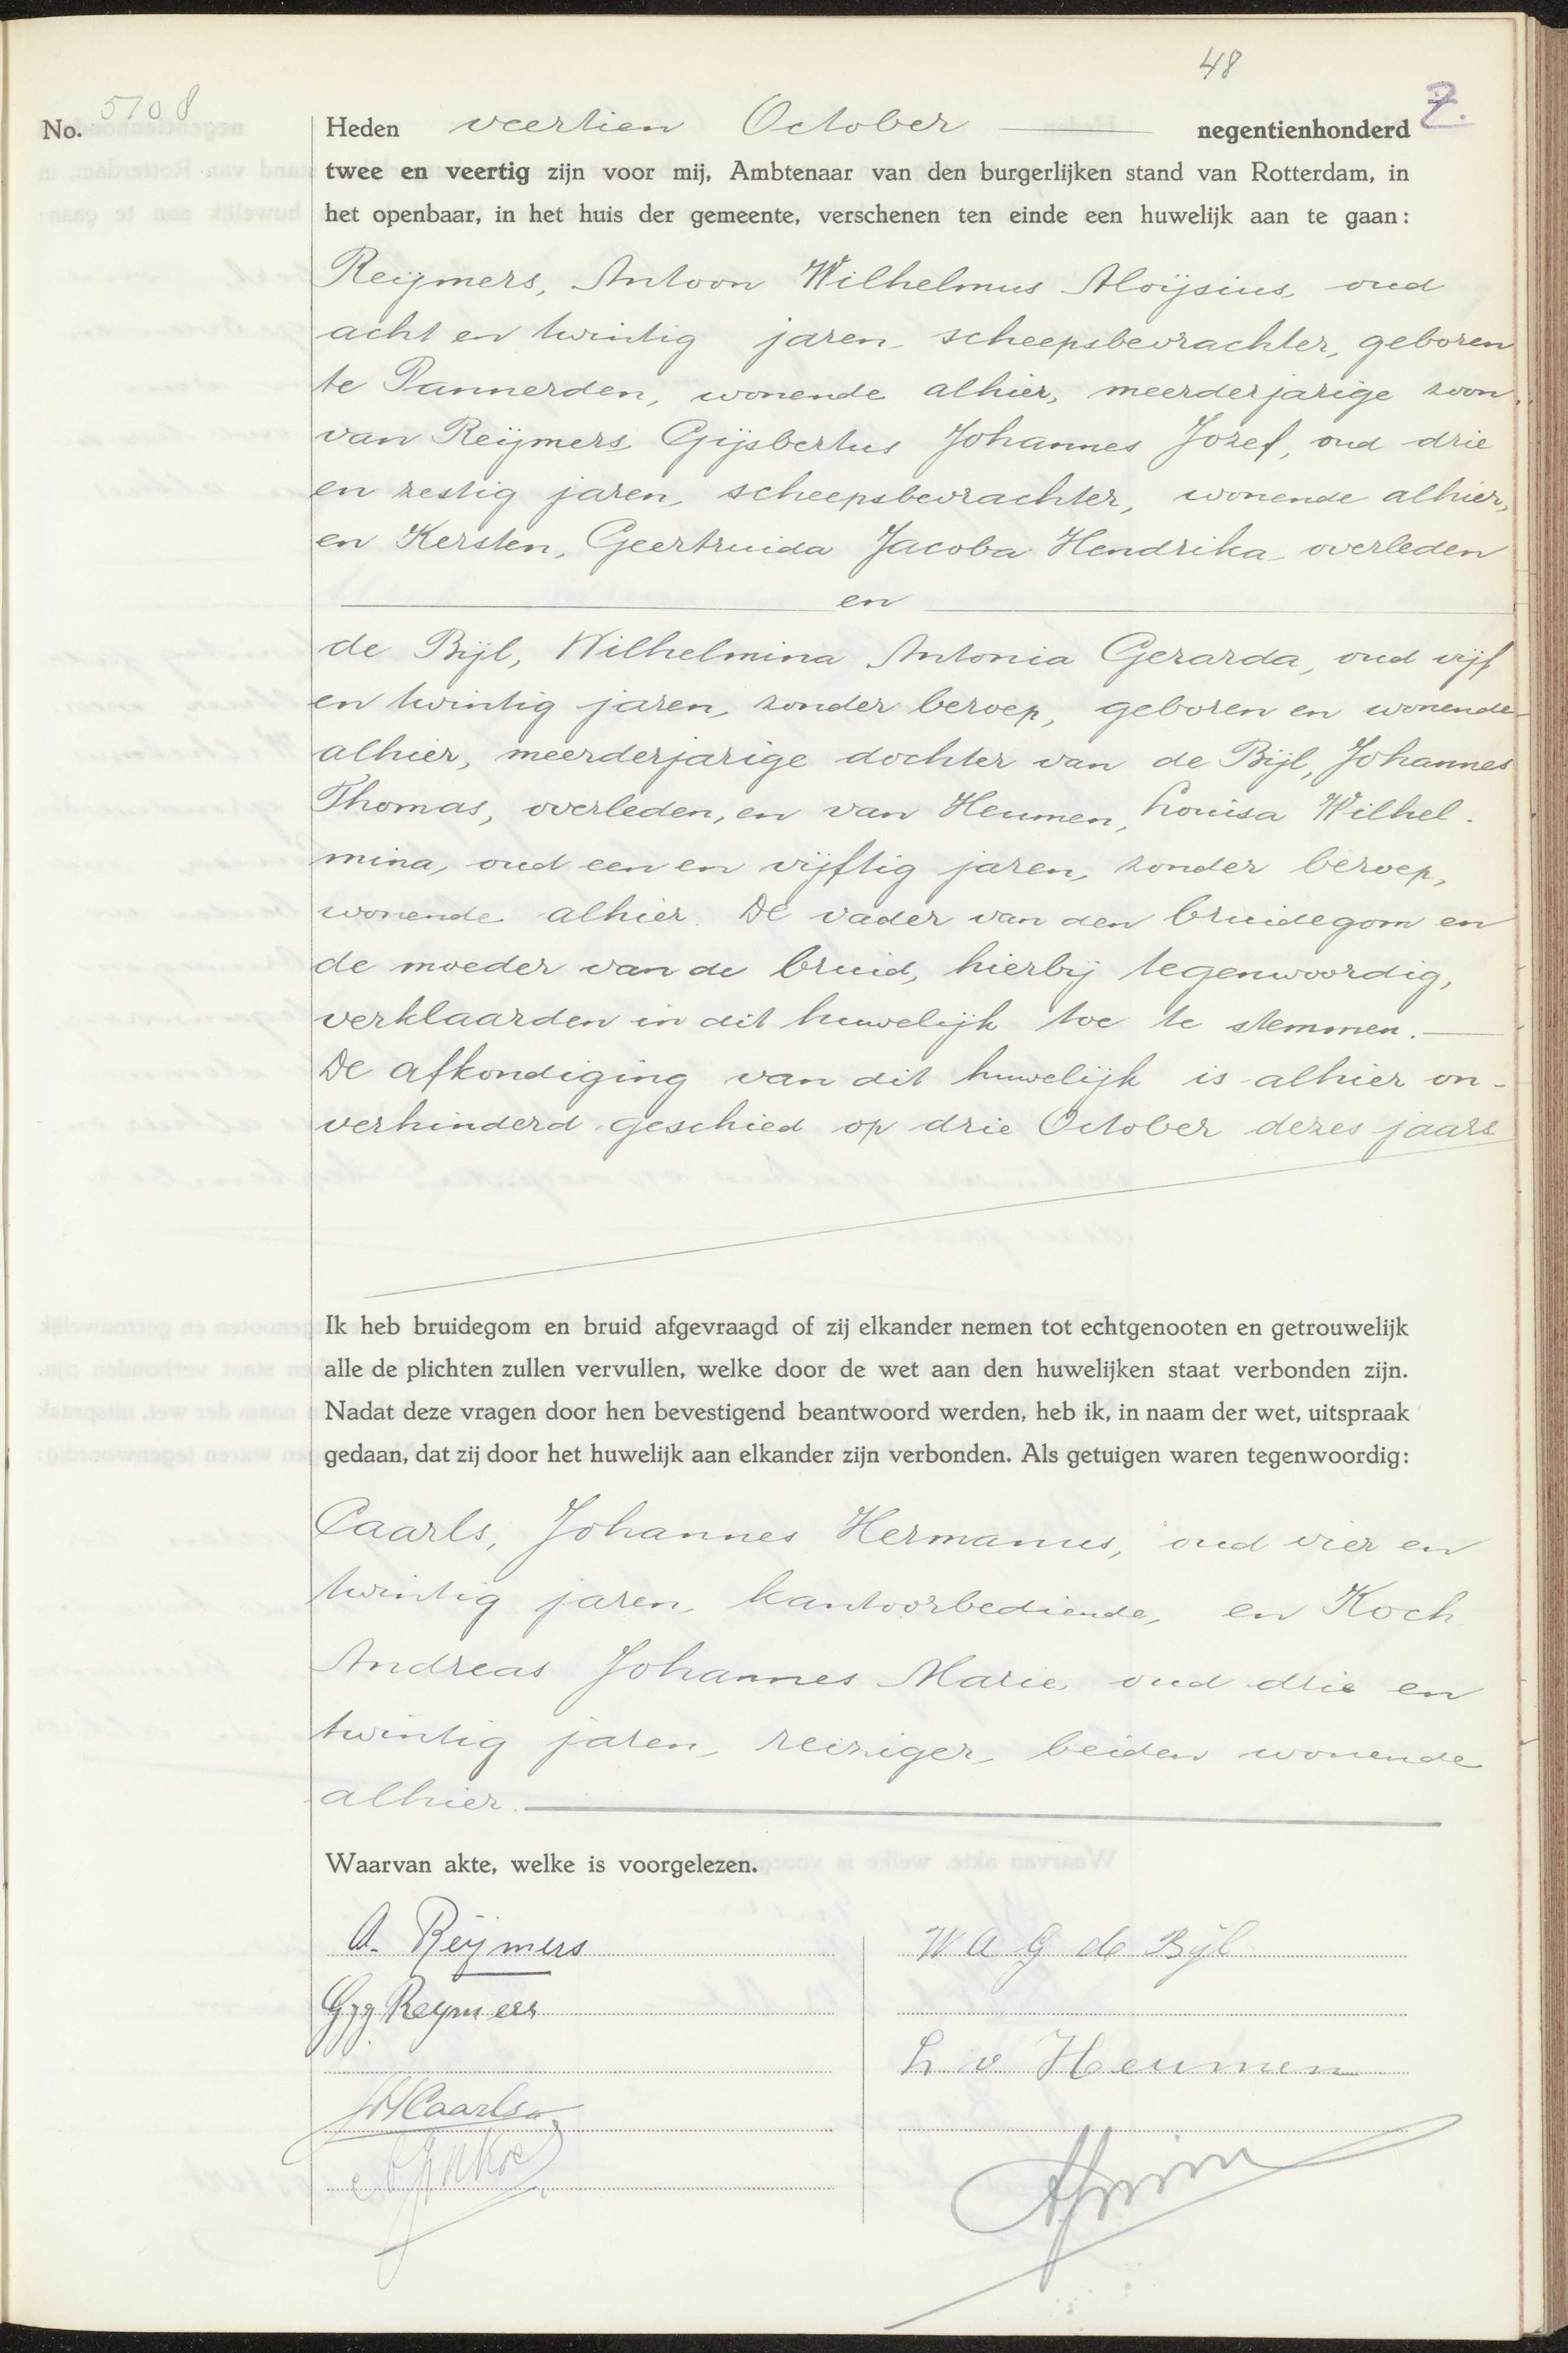 48
Z.
No. 5708
Heden veertien October negentienhonderd
twee en veertig zijn voor mij, Ambtenaar van den burgerlijken stand van Rotterdam, in
het openbaar, in het huis der gemeente, verschenen ten einde een huwelijk aan te gaan:
Reijmers, Antoon Wilhelmus Aloijsius, oud
acht en twintig jaren, scheepsbevrachter, geboren
te Pannerden, wonende alhier, meerderjarige zoon
van Reijmers Gijsbertus Johannes Jozef, oud drie
en zestig jaren, scheepsbevrachter, wonende alhier,
en Kersten, Geertruida Jacoba Hendrika overleden
en
de Bijl, Wilhelmina Antonia Gerarda, oud vijf
en twintig jaren, zonder beroep, geboren en wonende
alhier, meerderjarige dochter van de Bijl, Johannes
Thomas, overleden, en van Heumen, Louisa Wilhel-
mina, oud een en vijftig jaren, zonder beroep,
wonende alhier. De vader van den bruidegom en
de moeder van de bruid, hierbij tegenwoordig,
verklaarden in dit huwelijk toe te stemmen.
De afkondiging van dit huwelijk is alhier on-
verhinderd geschied op drie October dezes jaars
Ik heb bruidegom en bruid afgevraagd of zij elkander nemen tot echtgenooten en getrouwelijk
alle de plichten zullen vervullen, welke door de wet aan den huwelijken staat verbonden zijn.
Nadat deze vragen door hen bevestigend beantwoord werden, heb ik, in naam der wet, uitspraak
gedaan, dat zij door het huwelijk aan elkander zijn verbonden. Als getuigen waren tegenwoordig:
Caarls, Johannes Hermanus, oud vier en
twintig jaren, kantoorbediende, en Koch
Andreas Johannes Marie, oud drie en
twintig jaren, reiziger, beiden wonende
alhier.
Waarvan akte, welke is voorgelezen.
A. Reijmers
W A G de Bijl
GJJ Reymers
L v Heumen
JHCaarls